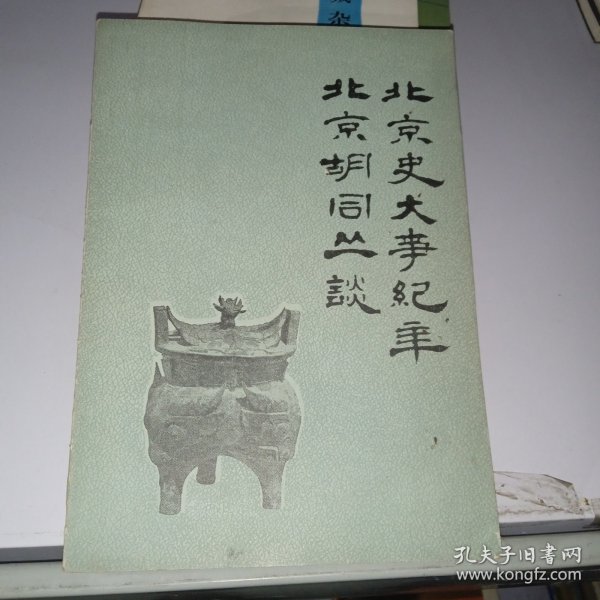 北京史大事纪年
北京胡同丛談
杂
孔夫子旧书网
www.kongfz.com